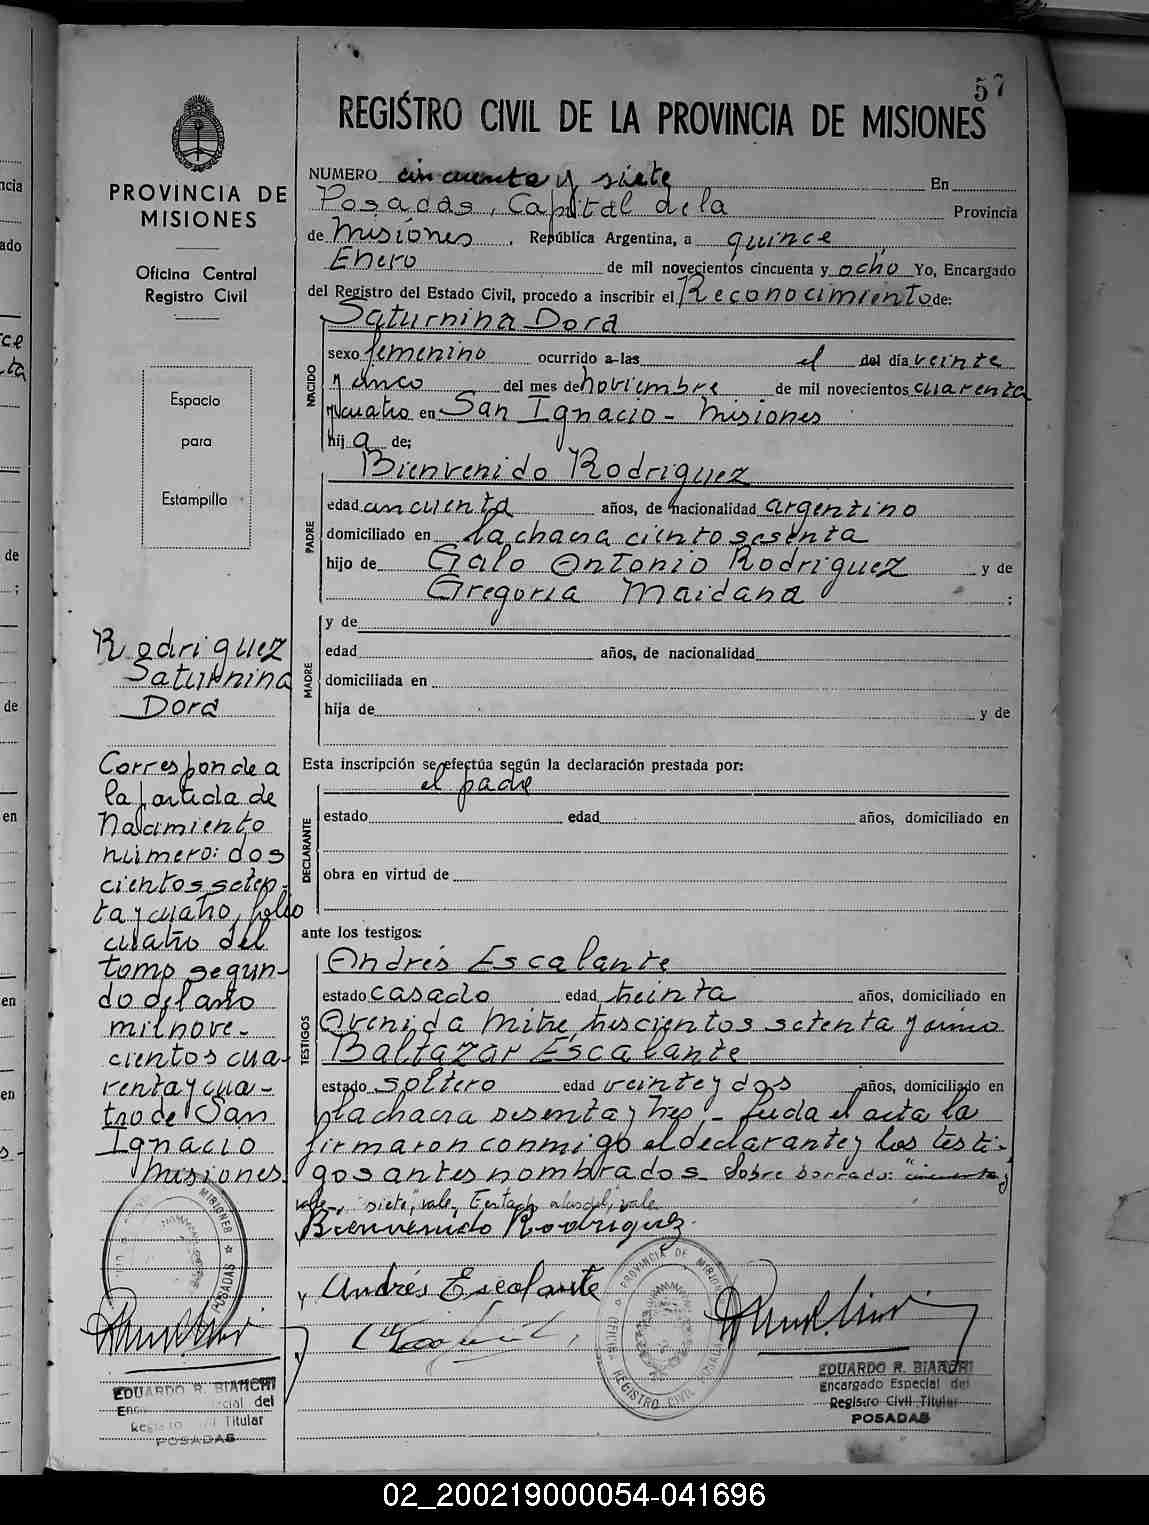 57
REGISTRO CIVIL DE LA PROVINCIA DE MISIONES
PROVINCIA DE
MISIONES
Oficina Central
Registro Civil
Espacio
para
Estampilla
NUMERO cincuenta y siete En
Posadas, Capital de la Provincia
de Misiones, República Argentina, a quince
Enero de mil novecientos cincuenta y ocho Yo, Encargado
del Registro del Estado Civil, procedo a inscribir el Reconocimiento de:
Saturnina Dora
NACIDO
sexo femenino ocurrido a las el del día veinte
y cinco del mes de noviembre de mil novecientos cuarenta
y cuatro en San Ignacio - Misiones
hija de;
Bienvenido Rodriguez
PADRE
edad cincuenta años, de nacionalidad argentino
domiciliado en la chacra ciento sesenta
hijo de Galo Antonio Rodriguez y de
Gregoria Maidana ;
MADRE
y de
edad años, de nacionalidad
domiciliada en
hija de y de
Esta inscripción se efectúa según la declaración prestada por:
el padre
DECLARANTE
estado edad años, domiciliado en
obra en virtud de
ante los testigos:
TESTIGOS
Andrés Escalante
estado casado edad treinta años, domiciliado en
Avenida Mitre, trescientos setenta y cinco
Baltazar Escalante
estado soltero edad veinte y dos años, domiciliado en
la chacra sesenta y tres - Leida el acta la
firmaron conmigo el declarante y los testi-
gos antes nombrados - Sobre borrado: "cincuenta y
vale, "siete", vale,
Bienvenido Rodriguez
Andrés Escalante
Rodriguez
Saturnina
Dora
Corresponde a
la partida de
Nacimiento
número: dos
cientos seten-
ta y cuatro, folio
cuatro del
tomo segun-
do del año
mil nove-
cientos cua-
renta y cua-
tro de San
Ignacio
Misiones
MISIONES ☆ POSADAS
PROVINCIA DE MISIONES
REGISTRO CIVIL POSADAS
EDUARDO R. BIANCHI
Encargado Especial del
Registro Civil Titular
POSADAS
EDUARDO R. BIANCHI
Encargado Especial del
Registro Civil Titular
POSADAS
02_200219000054-041696